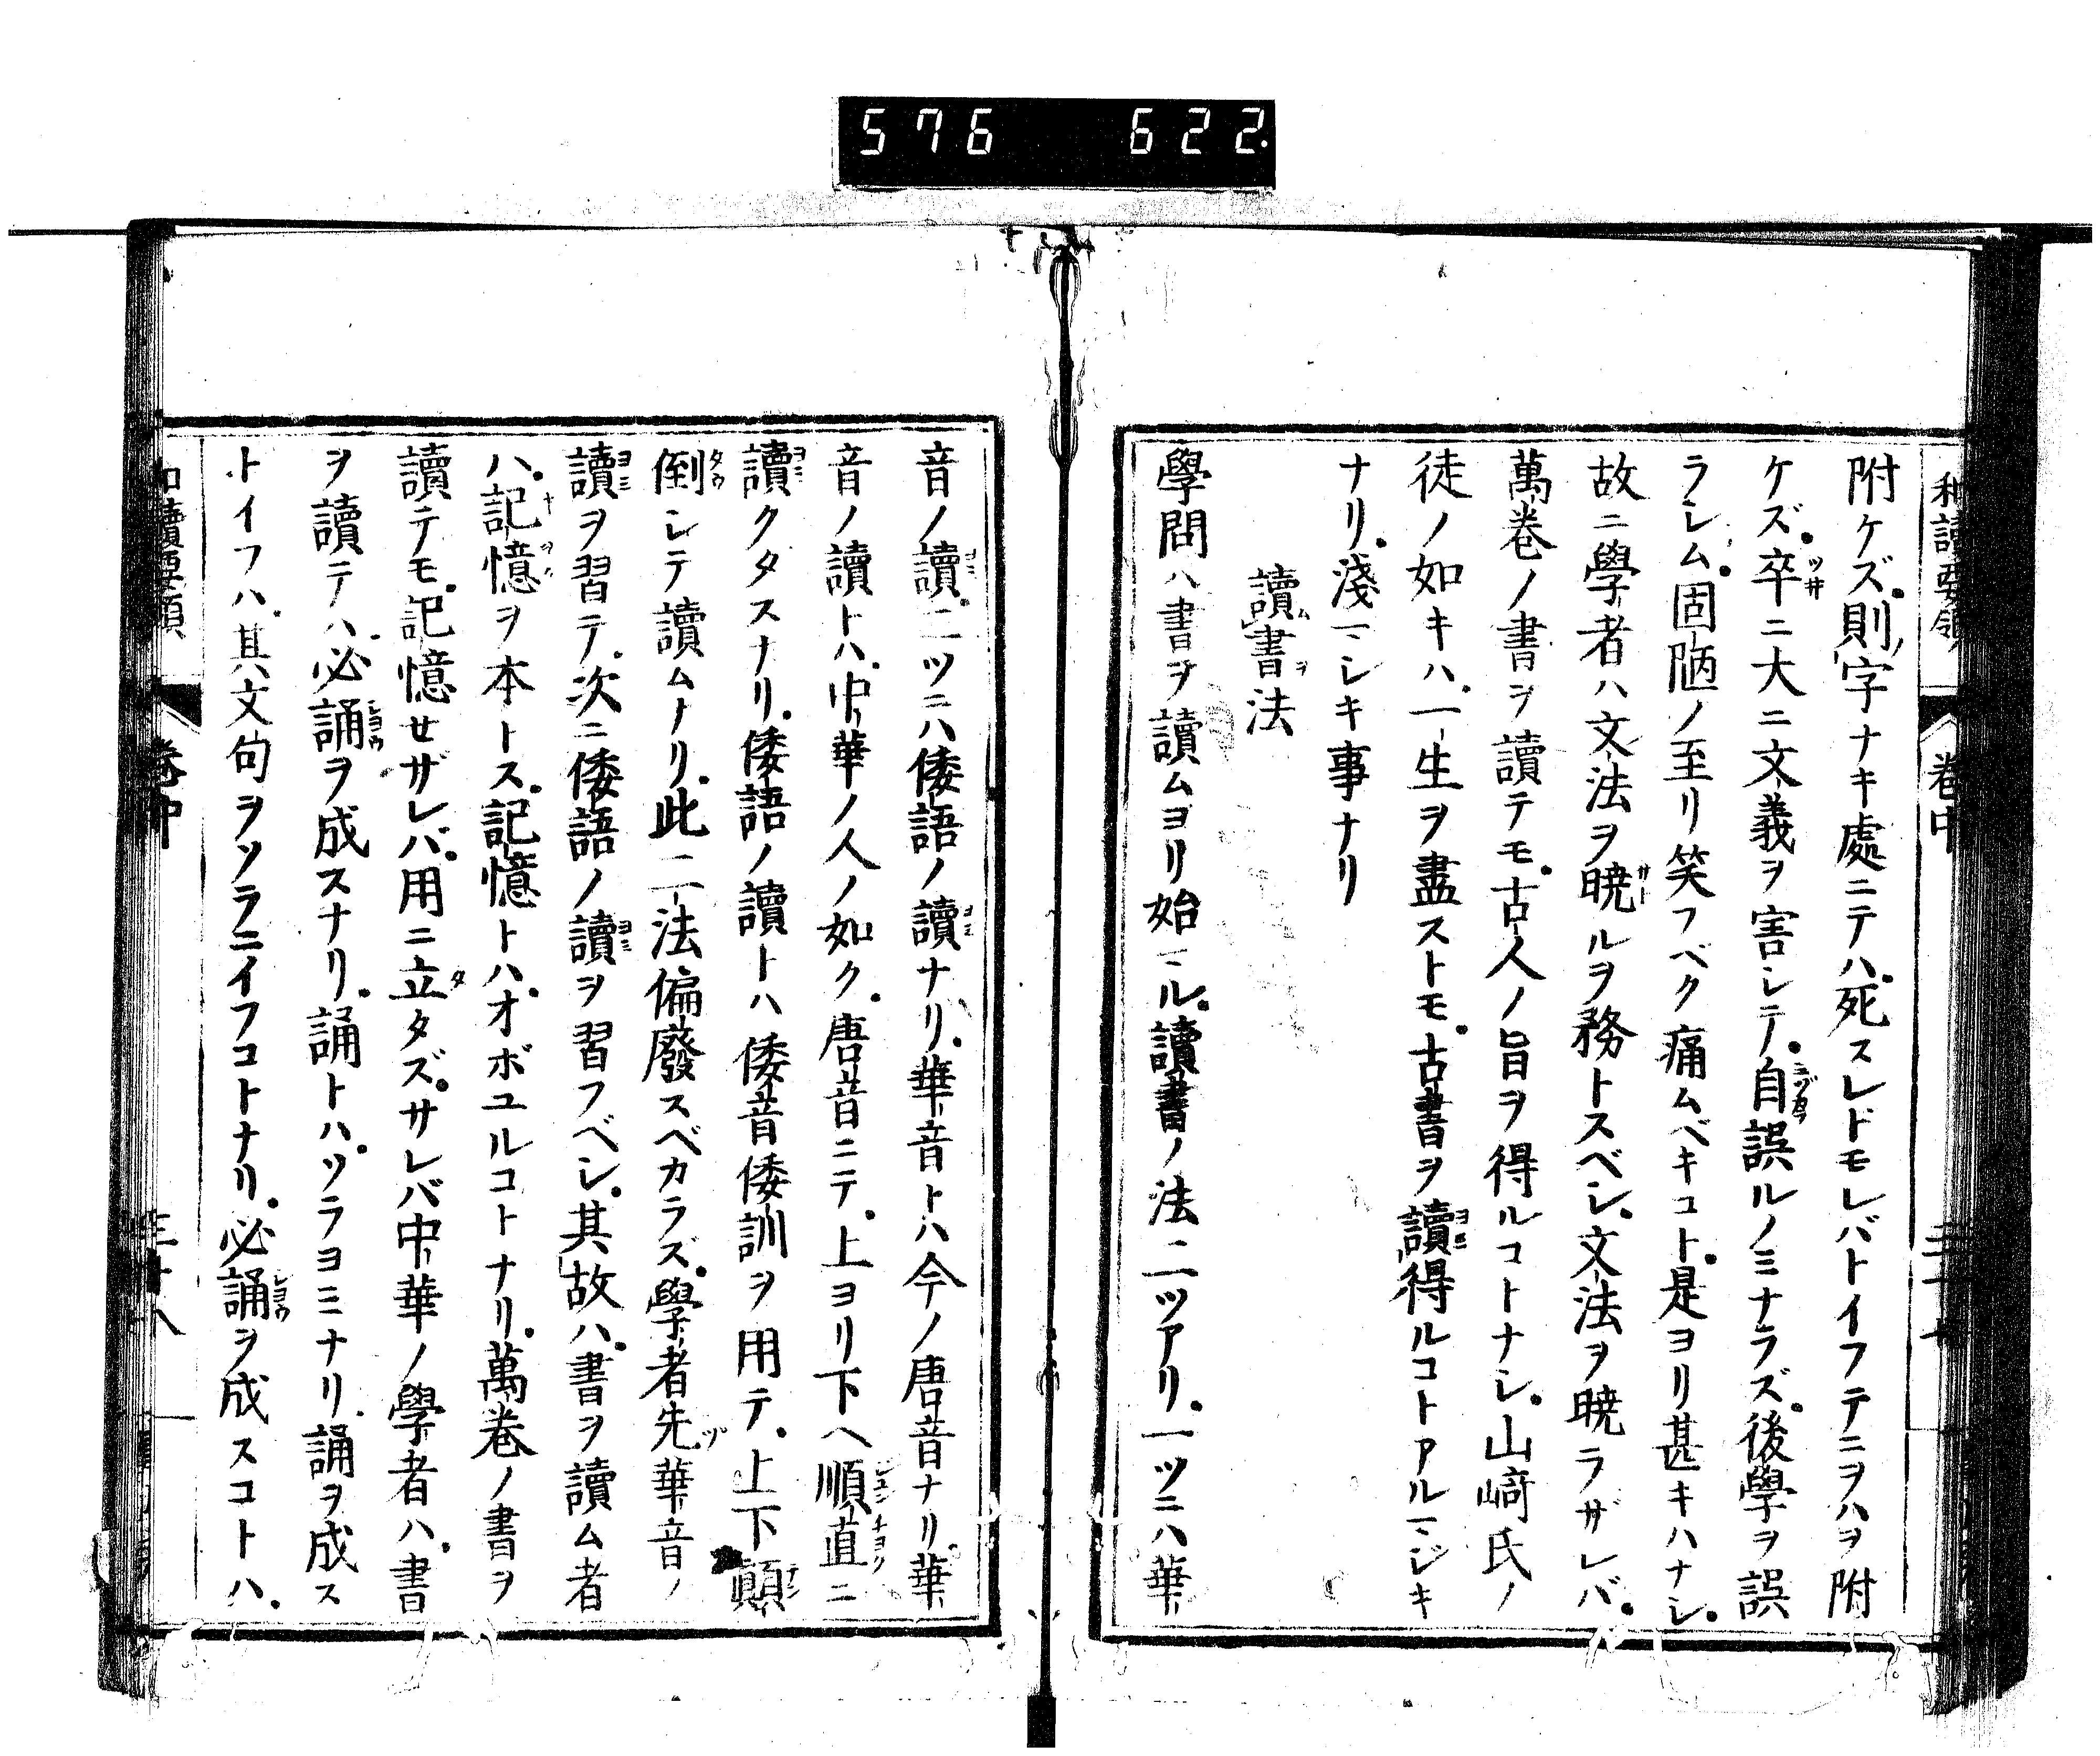 576 622
和讀要領 卷中
附ケズ。則字ナキ處ニテハ。死スレドモレバトイフテニヲハヲ附
ケズ。卒ニ大ニ文義ヲ害シテ。自誤ルノミナラズ。後學ヲ誤
ラシム。固陋ノ至リ笑フベク痛ムベキコト。是ヨリ甚キハナシ。
故ニ學者ハ文法ヲ曉ルヲ務トスベシ。文法ヲ曉ラザレバ。
萬卷ノ書ヲ讀テモ。古人ノ旨ヲ得ルコトナシ。山﨑氏ノ
徒ノ如キハ。一生ヲ盡ストモ。古書ヲ讀得ルコトアルマジキ
ナリ。淺マシキ事ナリ
讀書法
學問ハ書ヲ讀ムヨリ始マル。讀書ノ法二ツアリ。一ツニハ華
音ノ讀。二ツニハ倭語ノ讀ナリ。華音トハ今ノ唐音ナリ。華
音ノ讀トハ。中華ノ人ノ如ク。唐音ニテ。上ヨリ下ヘ順直ニ
讀クタスナリ。倭語ノ讀トハ倭音倭訓ヲ用テ。上下顛
倒シテ讀ムナリ。此二法偏廢スベカラズ。學者先華音ノ
讀ヲ習テ。次ニ倭語ノ讀ヲ習フベシ。其故ハ。書ヲ讀ム者
ハ。記憶ヲ本トス。記憶トハ。オボユルコトナリ。萬卷ノ書ヲ
讀テモ。記憶セザレバ。用ニ立タズ。サレバ中華ノ學者ハ。書
ヲ讀テハ。必誦ヲ成スナリ。誦トハ。ソラヨミナリ。誦ヲ成ス
トイフハ。其文句ヲソラニイフコトナリ。必誦ヲ成スコトハ。
和讀要領 卷中 三十八